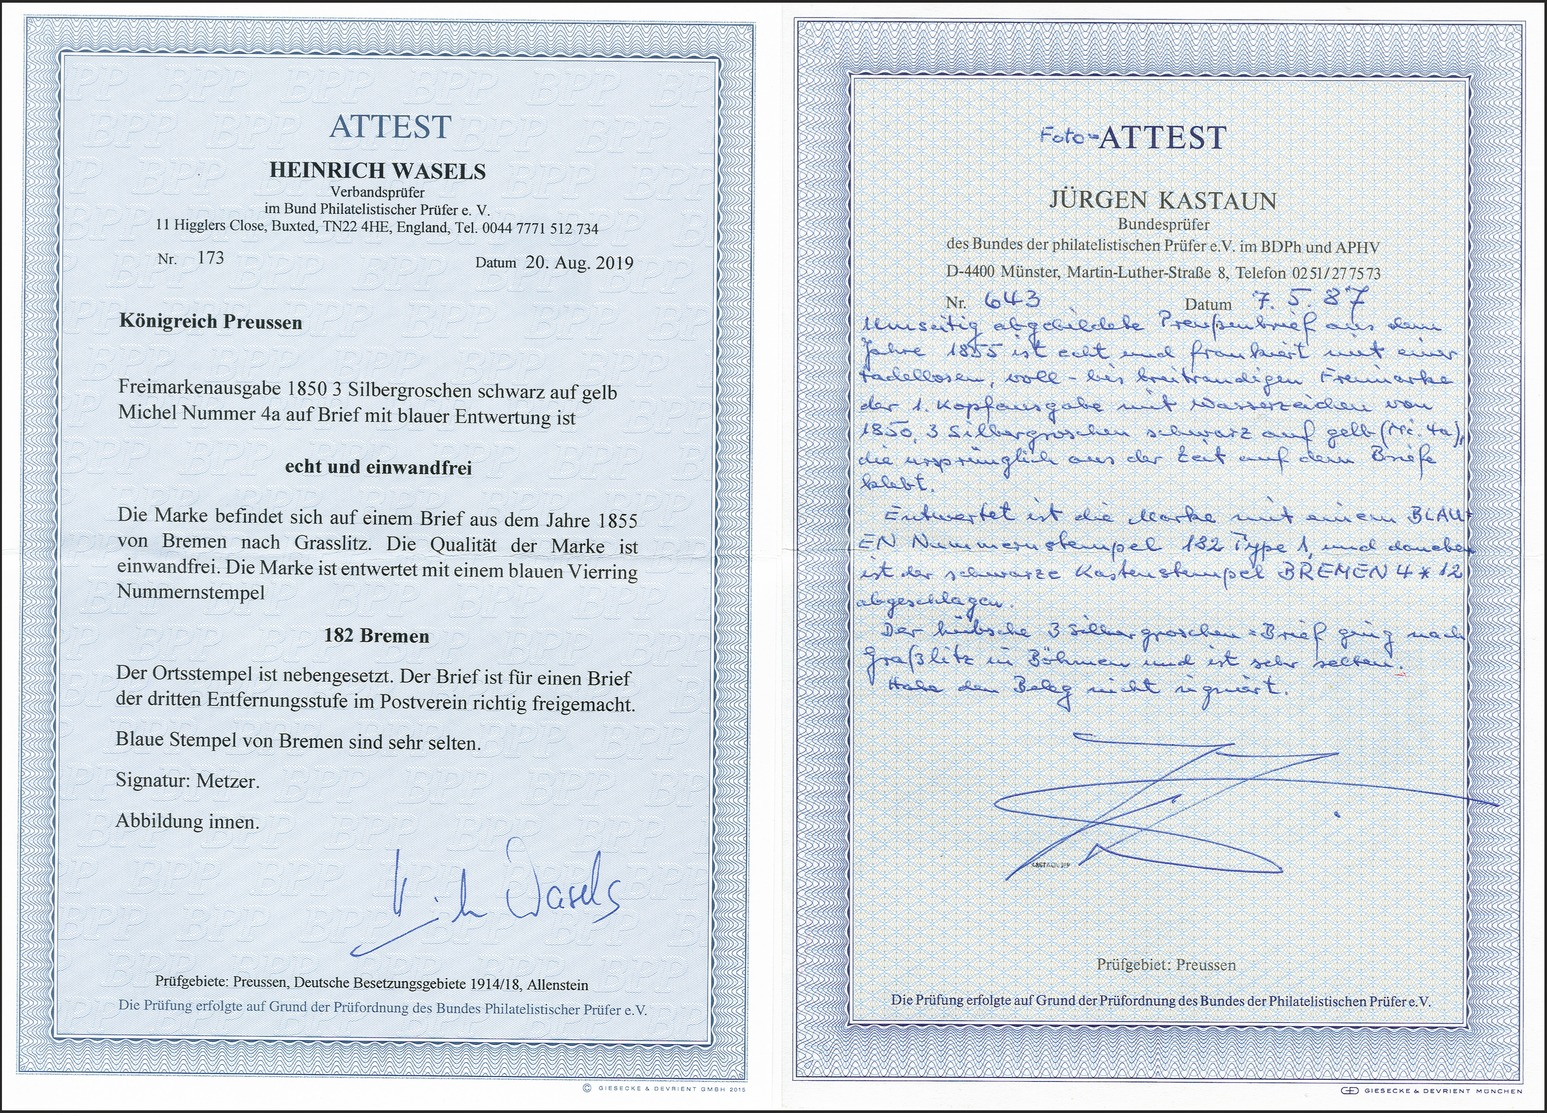 ATTEST
HEINRICH WASELS
Verbandsprüfer
im Bund Philatelistischer Prüfer e. V.
11 Higglers Close, Buxted, TN22 4HE, England, Tel. 0044 7771 512 734
Nr. 173 Datum 20. Aug. 2019
Königreich Preussen
Freimarkenausgabe 1850 3 Silbergroschen schwarz auf gelb
Michel Nummer 4a auf Brief mit blauer Entwertung ist
echt und einwandfrei
Die Marke befindet sich auf einem Brief aus dem Jahre 1855
von Bremen nach Grasslitz. Die Qualität der Marke ist
einwandfrei. Die Marke ist entwertet mit einem blauen Vierring
Nummernstempel
182 Bremen
Der Ortsstempel ist nebengesetzt. Der Brief ist für einen Brief
der dritten Entfernungsstufe im Postverein richtig freigemacht.
Blaue Stempel von Bremen sind sehr selten.
Signatur: Metzer.
Abbildung innen.
Wasels
Prüfgebiete: Preussen, Deutsche Besetzungsgebiete 1914/18, Allenstein
Die Prüfung erfolgte auf Grund der Prüfordnung des Bundes Philatelistischer Prüfer e.V.
© GIESECKE & DEVRIENT GMBH 2015
Foto=ATTEST
JÜRGEN KASTAUN
Bundesprüfer
des Bundes der philatelistischen Prüfer e.V. im BDPh und APHV
D-4400 Münster, Martin-Luther-Straße 8, Telefon 0251/277573
Nr. 643 Datum 7.5.87
Umseitig abgebildete Preußenbrief aus dem
Jahre 1855 ist echt und frankiert mit einer
tadellosen, voll- bis breitrandigen Freimarke
der 1. Kopfausgabe mit Wasserzeichen von
1850, 3 Silbergroschen schwarz auf gelb (Mi. 4a),
die ursprünglich aus der Zeit auf dem Briefe
klebt.
Entwertet ist die Marke mit einem BLAU=
EN Nummernstempel 182 Type 1, und daneben
ist der schwarze Kastenstempel BREMEN 4 * 12
abgeschlagen.
Der hübsche 3 Silbergroschen=Brief ging nach
Graßlitz in Böhmen und ist sehr selten.
Habe den Beleg nicht signiert.
KASTAUN BPP
Prüfgebiet: Preussen
Die Prüfung erfolgte auf Grund der Prüfordnung des Bundes der Philatelistischen Prüfer e.V.
GIESECKE & DEVRIENT MÜNCHEN